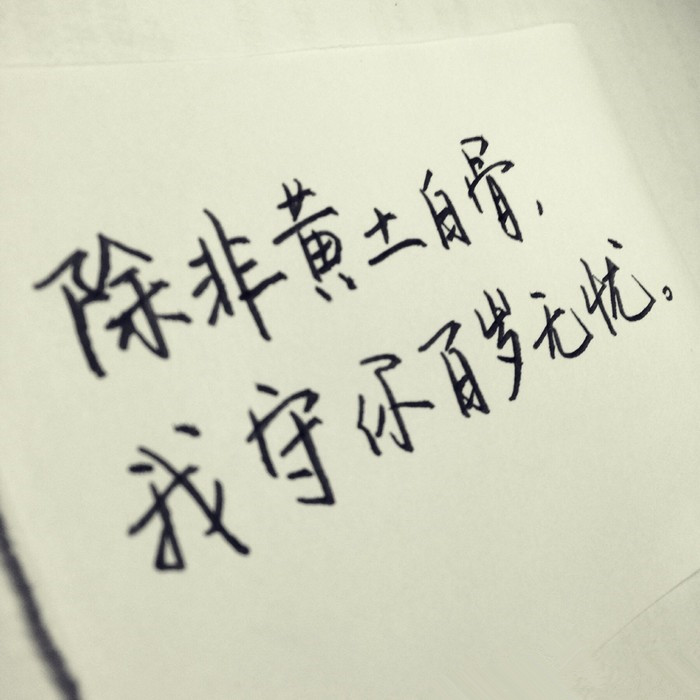 除非黄土白骨，
我守你百岁无忧。